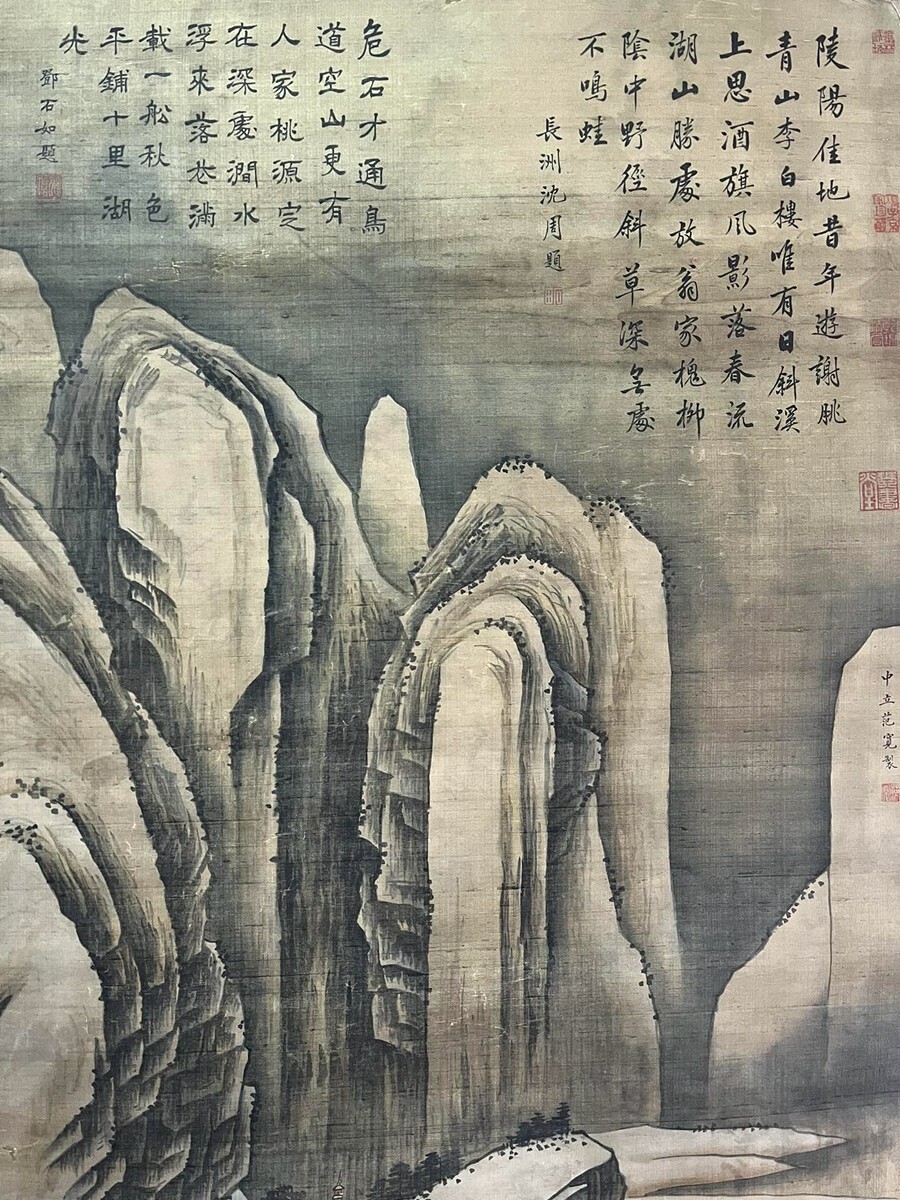 陵陽佳地昔年遊謝眺
青山李白樓唯有日斜溪
上思酒旗風影落春流
湖山勝處放翁家槐柳
陰中野徑斜草深無處
不鳴蛙
長洲沈周題
危石才通鳥
道空山更有
人家桃源定
在深處澗水
浮來落花滿
載一船秋色
平鋪十里湖
光
鄧石如題
中立范寬製